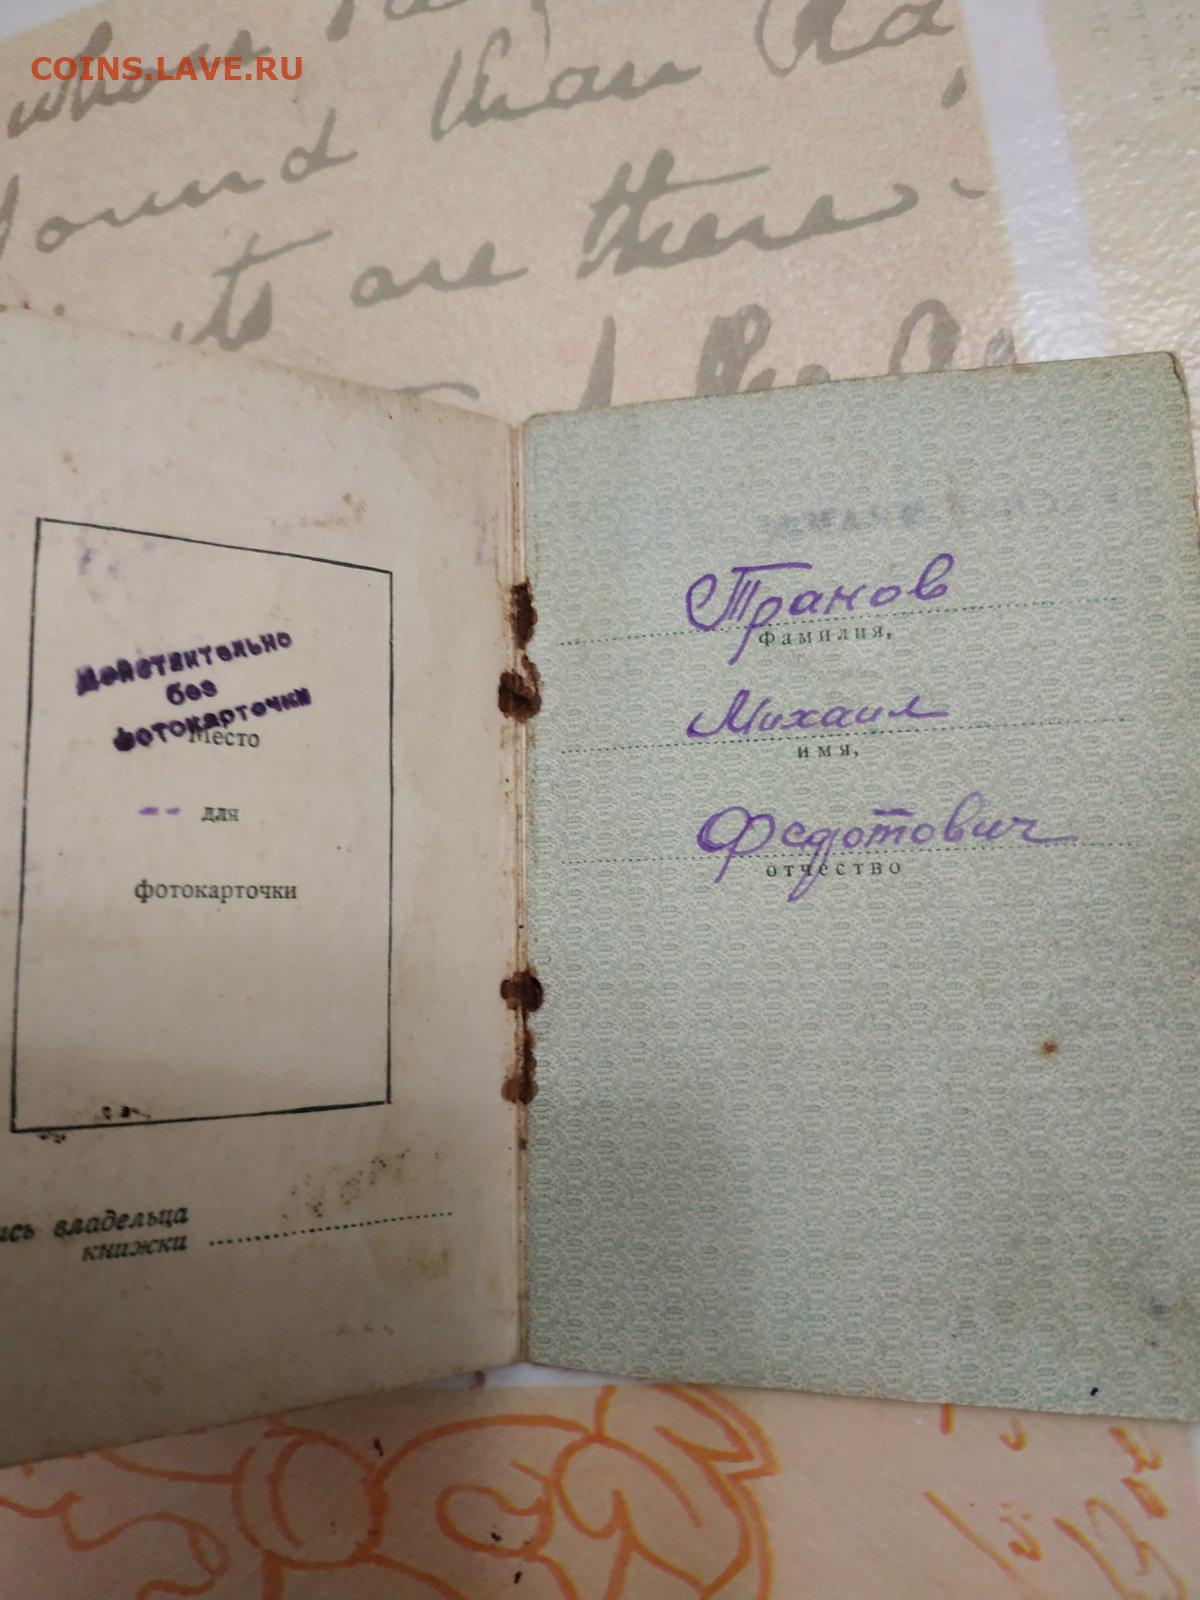 COINS.LAVE.RU
whose
found than
are there
Действительно
без
фотокарточки
Место
для
фотокарточки
владельца
книжки
Траков
фамилия,
Михаил
имя,
Федотович
отчество